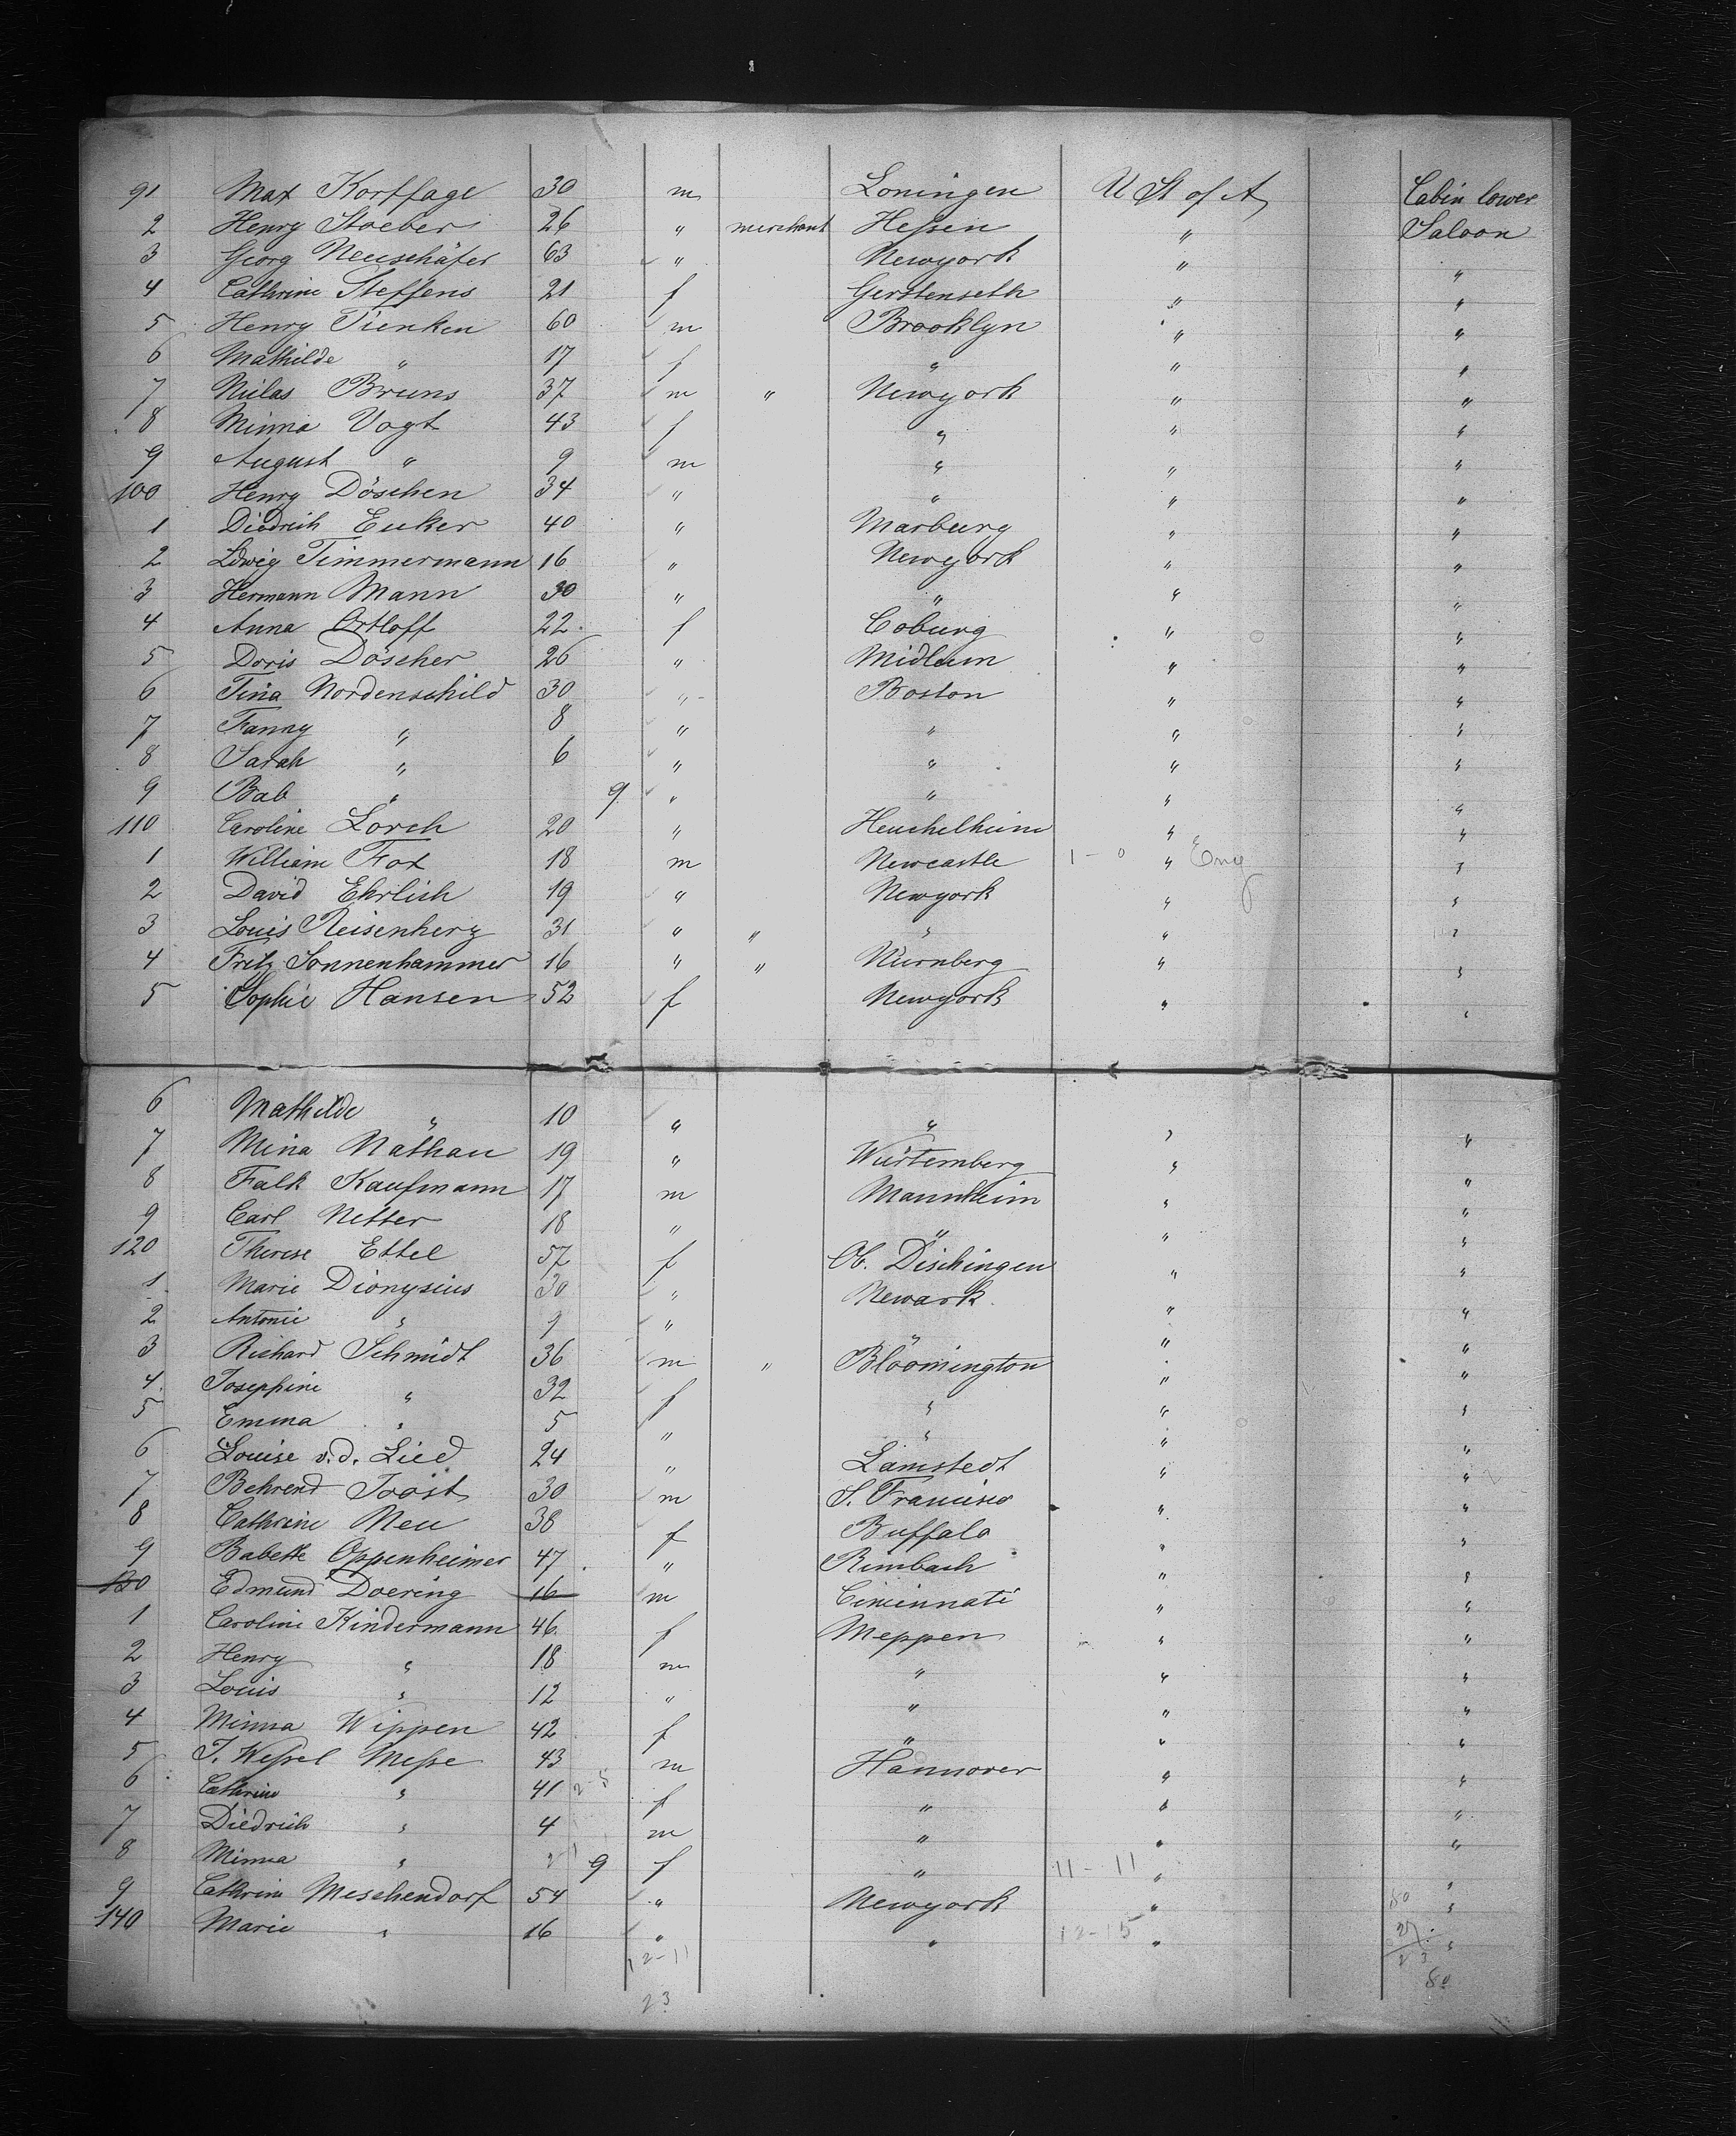 91 Max Korffage 30 m Loningen U St of A Cabin lower
2 Henry Stoeber 26 " merchant Heßen " Saloon
3 Georg Neuschäfer 63 " Newyork " "
4 Cathrine Steffens 21 f Gerstenseth " "
5 Henry Tienken 60 m Brooklyn " "
6 Mathilde " 17 f " " "
7 Bruns 37 m " Newyork " "
8 Minna Vogt 43 f " " "
9 August " 9 m " " "
100 Henry Döschen 34 " " " "
1 Diedrich Euker 40 " Marburg " "
2 Ldwig Timmermann 16 " Newyork " "
3 Hermann Mann 30 " " " "
4 Anna Ortloff 22 f Coburg " "
5 Doris Döscher 26 " Midlum " "
6 Tina Nordenschild 30 " Boston " "
7 Fanny " 8 " " " "
8 Sarah " 6 " " " "
9 Bab " 9 " " " "
110 Caroline Lorch 20 " Heuchelheim " "
1 William Fox 18 m Newcastle 1-0 " Eng "
2 David Ehrlich 19 " Newyork " "
3 Louis Reisenherz 31 " " " " "
4 Fritz Sonnenhammer 16 " " Nürnberg " "
5 Sophie Hansen 52 f Newyork " "
6 Mathilde " 10 " " " "
7 Mina Nathan 19 " Würtemberg " "
8 Falk Kaufmann 17 m Mannheim " "
9 Carl Netter 18 " " " "
120 Therese Ettel 57 f Ob. Dischingen " "
1 Marie Dionysius 30 " Newark " "
2 Antonie " 9 " " " "
3 Richard Schmidt 36 m " Bloomington " "
4 Josephine " 32 f " " "
5 Emma " 5 " " " "
6 Louise v.d. Lied 24 " Lamstedt " "
7 Behrend Joost 30 m S. Francisco " "
8 Cathrine Neu 38 f Buffalo " "
9 Babette Oppenheimer 47 " Rimbach " "
130 Edmund Doering 16 m Cincinnati " "
1 Caroline Kindermann 46 f Meppen " "
2 Henry " 18 m " " "
3 Louis " 12 " " " "
4 Minna Wippen 42 f " " "
5 J. Weßel Meße 43 m Hannover " "
6 Cathrine " 41 2-5 f " " "
7 Diedrich " 4 m " " "
8 Minna " 9 f " 11-11 " "
9 Cathrine Meschendorf 54 " Newyork " 80 "
140 Marie " 16 " " 12-15 " "
12-11
23
80